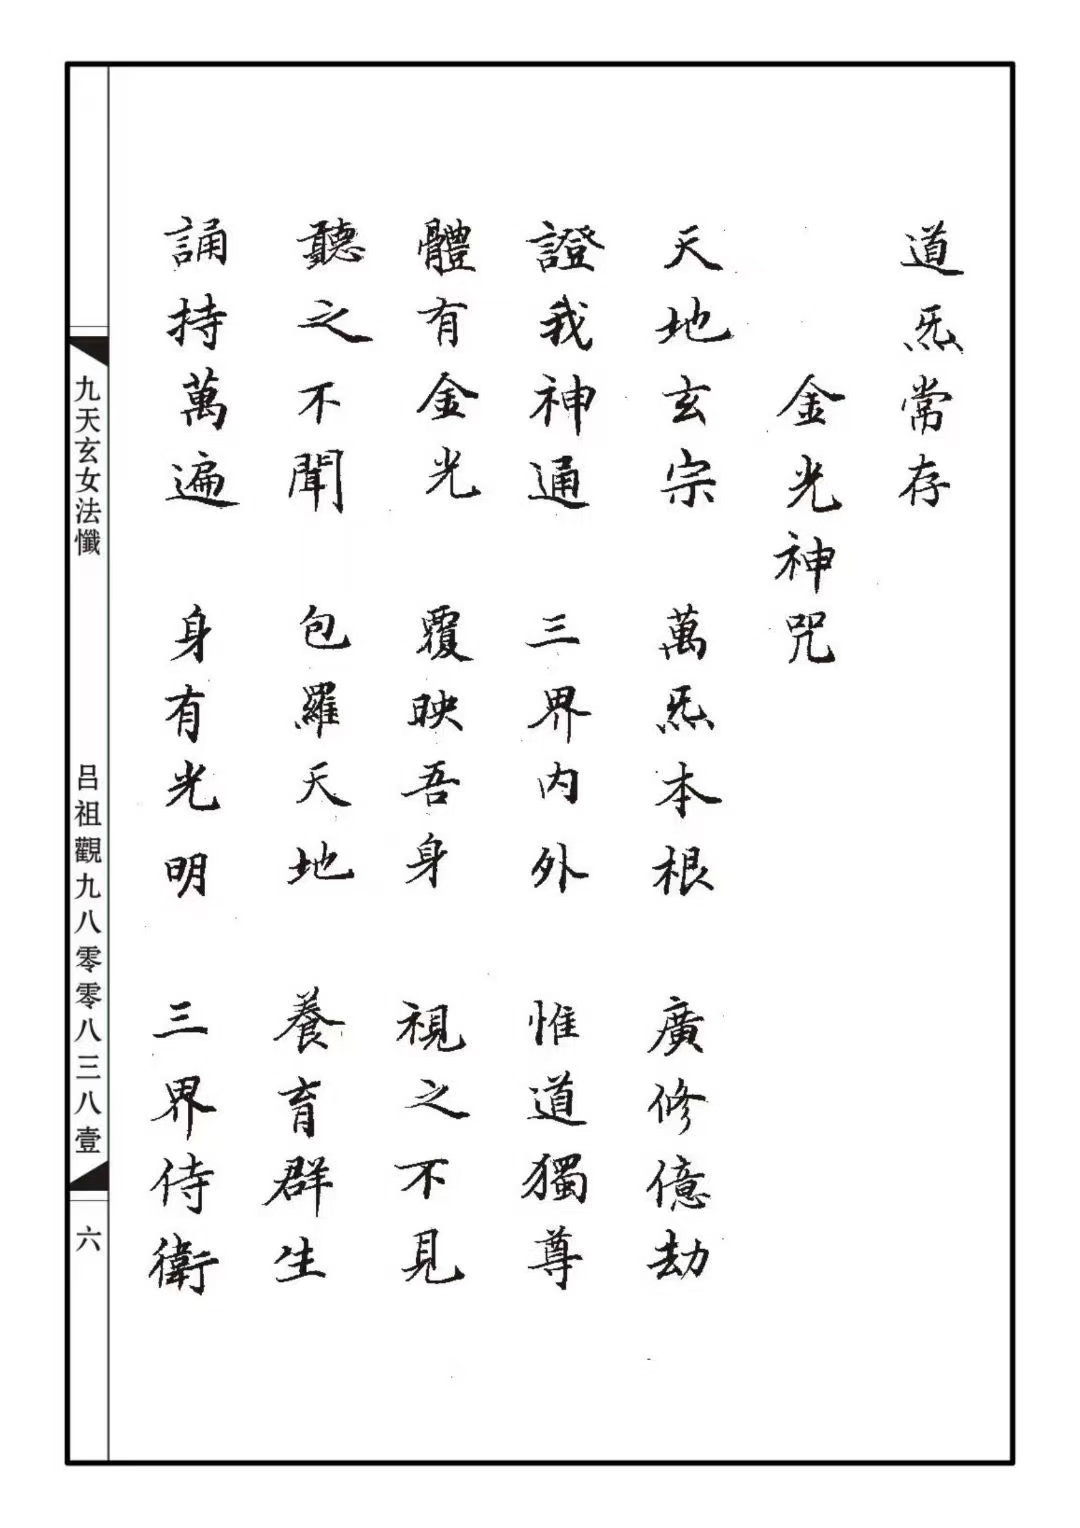 道炁常存
金光神咒
天地玄宗　萬炁本根　廣修億劫
證我神通　三界内外　惟道獨尊
體有金光　覆映吾身　視之不見
聽之不聞　包羅天地　養育群生
誦持萬遍　身有光明　三界侍衛
九天玄女法懺　呂祖觀九八零零八三八壹　六